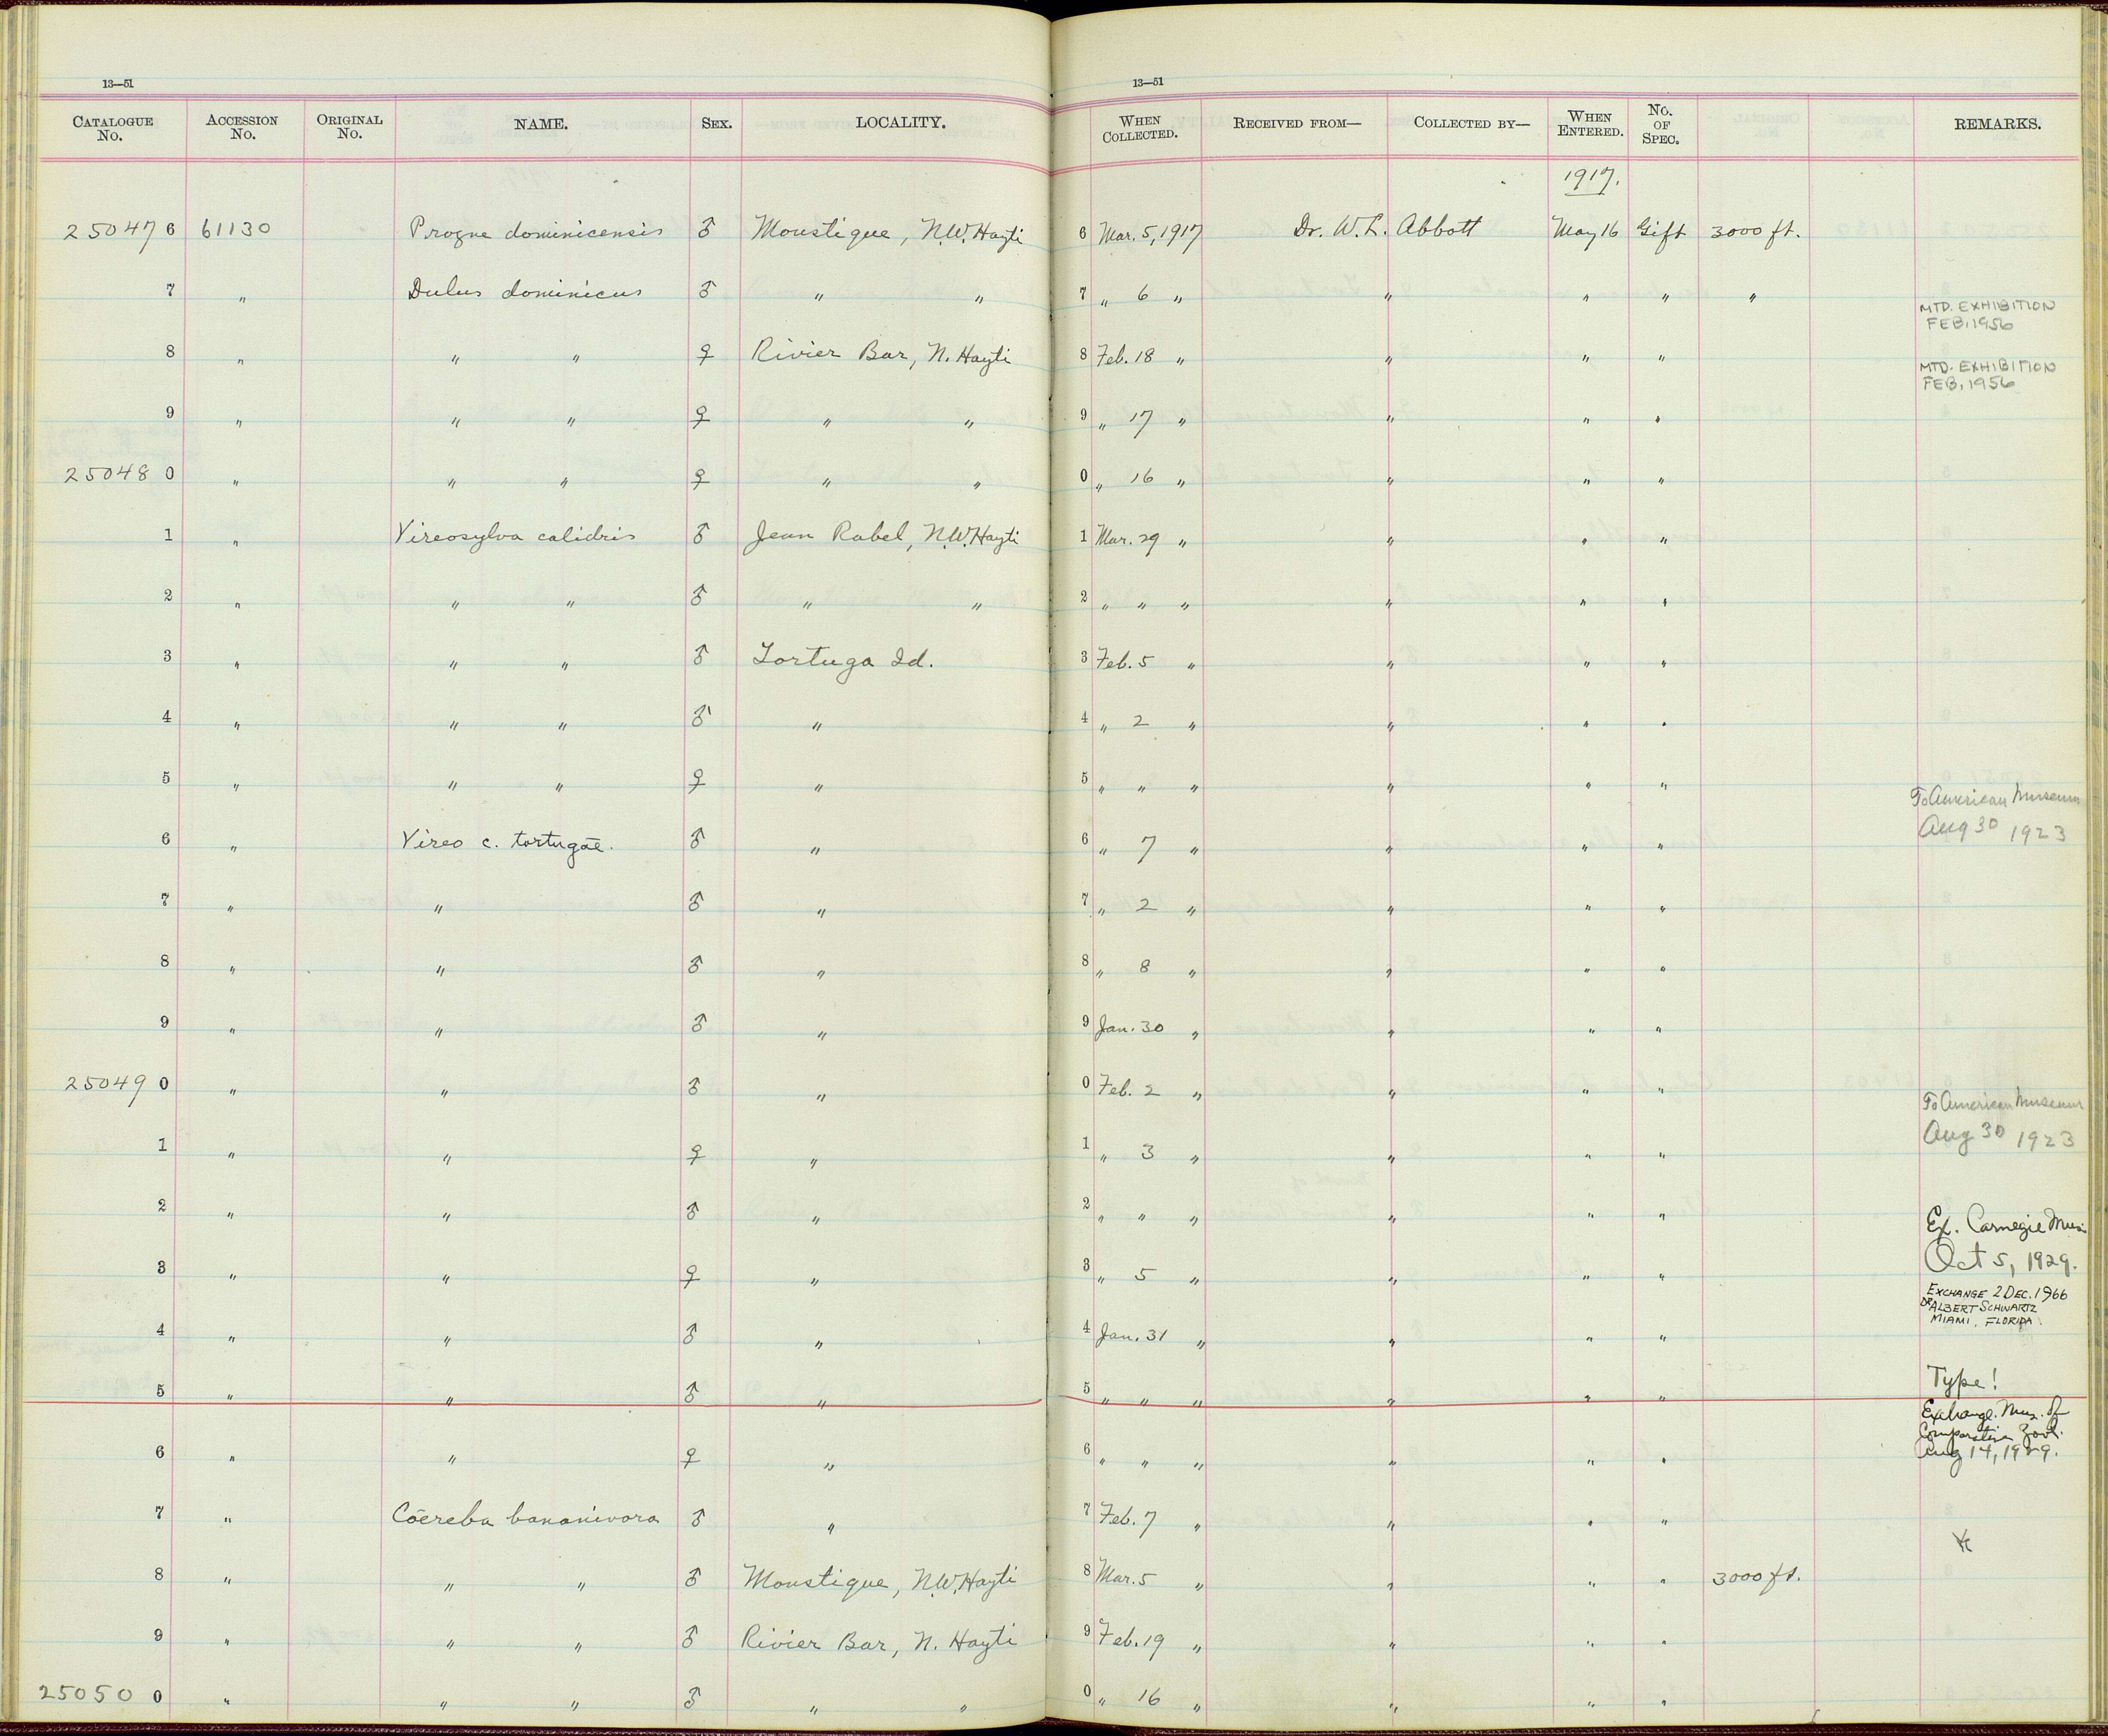 13—51
13—51
CATALOGUE No. ACCESSION No. ORIGINAL No. NAME. SEX. LOCALITY. WHEN COLLECTED. RECEIVED FROM— COLLECTED BY— WHEN ENTERED. No. OF SPEC. REMARKS.
1917.
25047 6 61130 Progne dominicensis ♂ Moustique, N.W. Hayti 6 Mar. 5, 1917 Dr. W. L. Abbott May 16 Gift 3000 ft.
7 " Dulus dominicus ♂ " " 7 " 6 " " " " "
MTD. EXHIBITION
FEB. 1956
8 " " " ♀ Rivier Bar, N. Hayti 8 Feb. 18 " " " "
MTD. EXHIBITION
FEB. 1956
9 " " " ♀ " " 9 " 17 " " " "
25048 0 " " " ♀ " " 0 " 16 " " " "
1 " Vireosylva calidris ♂ Jean Rabel, N.W. Hayti 1 Mar. 29 " " " "
2 " " " ♂ " " 2 " " " " " "
3 " " " ♂ Tortuga Id. 3 Feb. 5 " " " "
4 " " " ♂ " 4 " 2 " " " "
5 " " " ♀ " 5 " " " " " "
To American Museum
Aug 30 1923
6 " Vireo c. tortugae. ♂ " 6 " 7 " " " "
7 " " ♂ " 7 " 2 " " " "
8 " " ♂ " 8 " 8 " " " "
9 " " ♂ " 9 Jan. 30 " " " "
25049 0 " " ♂ " 0 Feb. 2 " " " "
To American Museum
Aug 30 1923
1 " " ♀ " 1 " 3 " " " "
2 " " ♂ " 2 " " " " " "
Ex. Carnegie Mus.
Oct 5, 1929.
3 " " ♀ " 3 " 5 " " " "
EXCHANGE 2 DEC. 1966
DR ALBERT SCHWARTZ
MIAMI, FLORIDA.
4 " " ♂ " 4 Jan. 31 " " " "
5 " " ♂ " 5 " " " " " " Type!
Exchange. Mus. of
Comparative Zool.
Aug 14, 1929.
6 " " ♀ " 6 " " " " " "
7 " Cōereba bananivora ♂ " 7 Feb. 7 " " " "
8 " " " ♂ Moustique, N.W. Hayti 8 Mar. 5 " " " " 3000 ft.
9 " " " ♂ Rivier Bar, N. Hayti 9 Feb. 19 " " " "
25050 0 " " " ♂ " " 0 " 16 " " " "